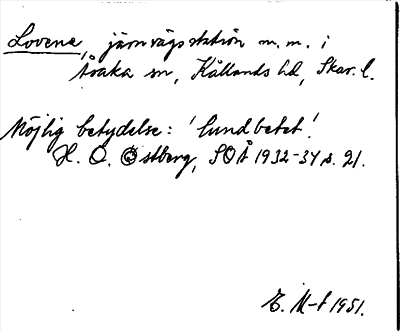 Lovene, järnvägsstation m.m. i
Åsaka sn, Kållands hd, Skar. l.
Möjlig betydelse: 'lundbetet'.
H. O. Östberg, SOÅ 1932-34 s. 21.
E. M-t 1951.